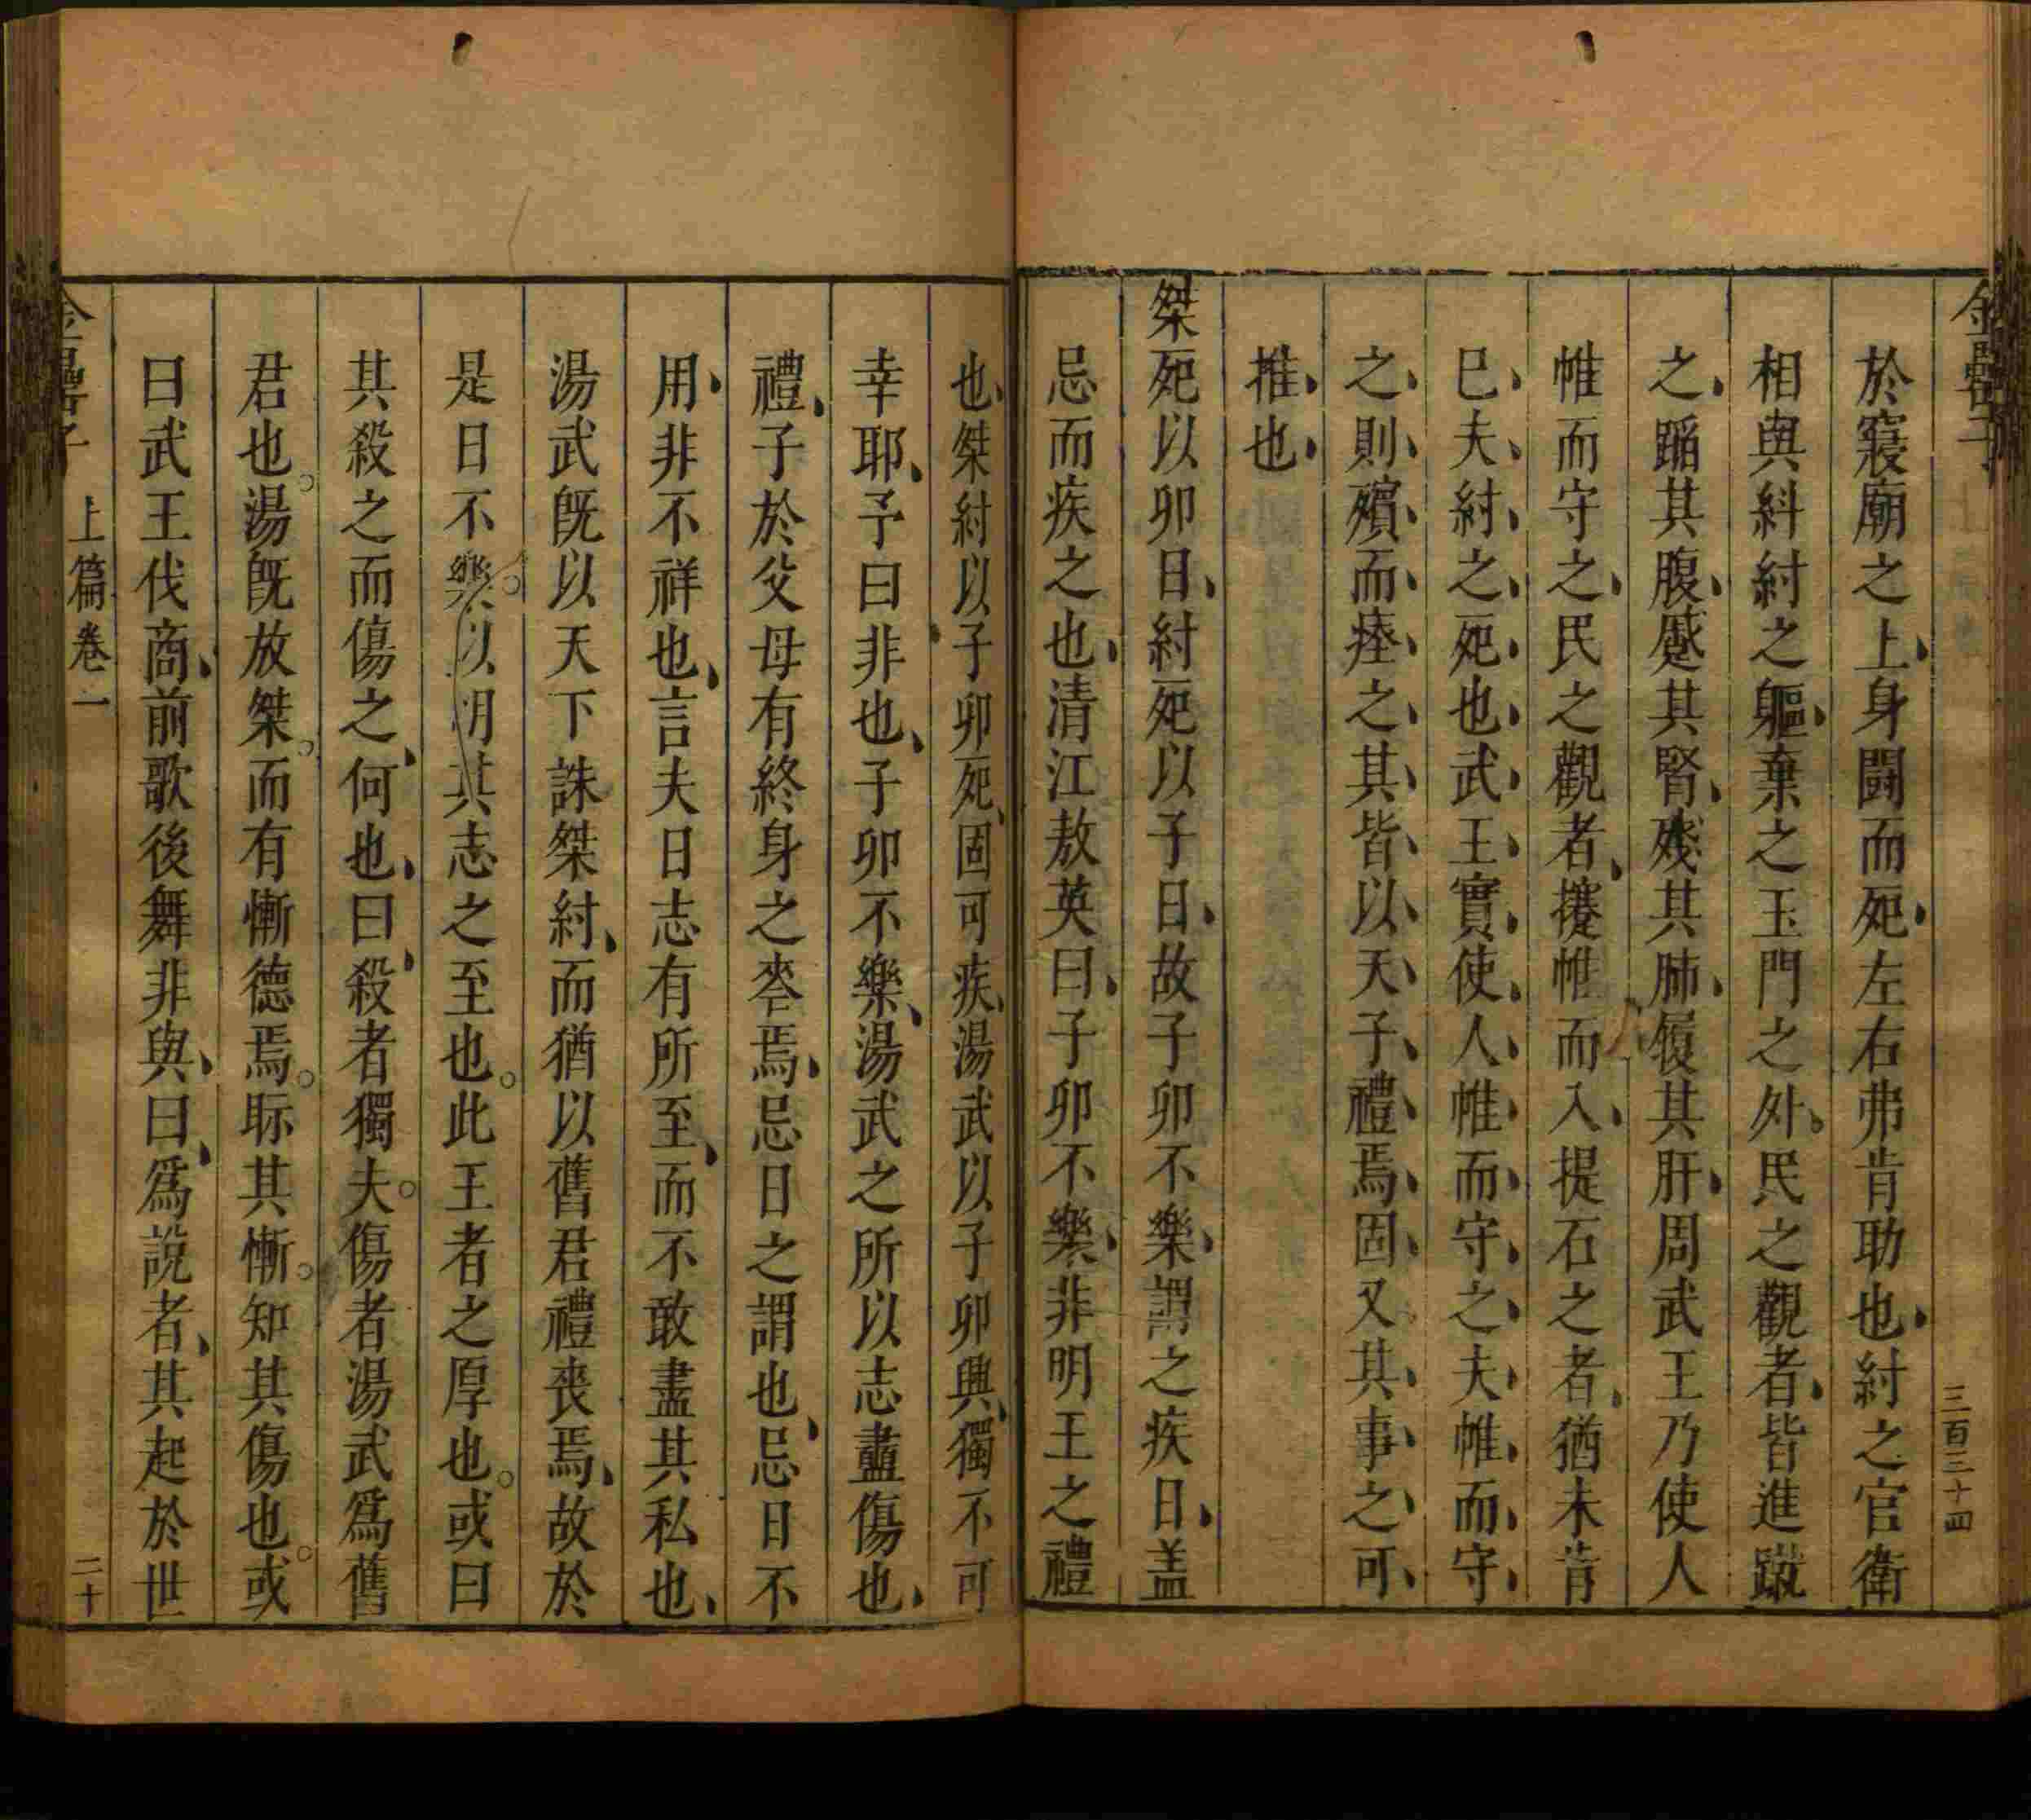 金罍子
三百三十四
於寢廟之上身鬭而死左右弗肯助也紂之官衛
相與紏紂之軀棄之玉門之外民之觀者皆進蹴
之蹈其腹蹙其腎殘其肺履其肝周武王乃使人
帷而守之民之觀者攓帷而入提石之者猶未肯
巳夫紂之死也武王實使人帷而守之夫帷而守
之則殯而瘞之其皆以天子禮焉固又其事之可
推也
桀死以卯日紂死以子日故子卯不樂謂之疾日盖
忌而疾之也清江敖英曰子卯不樂非明王之禮
也桀紂以子卯死固可疾湯武以子卯興獨不可
幸耶予曰非也子卯不樂湯武之所以志盡傷也
禮子於父母有終身之喪焉忌日之謂也忌日不
用非不祥也言夫日志有所至而不敢盡其私也
湯武旣以天下誅桀紂而猶以舊君禮喪焉故於
是日不樂以明其志之至也此王者之厚也或曰
其殺之而傷之何也曰殺者獨夫傷者湯武爲舊
君也湯旣放桀而有慚德焉眎其慚知其傷也或
曰武王伐商前歌後舞非與曰爲說者其起於世
金罍子
上篇卷一
二十